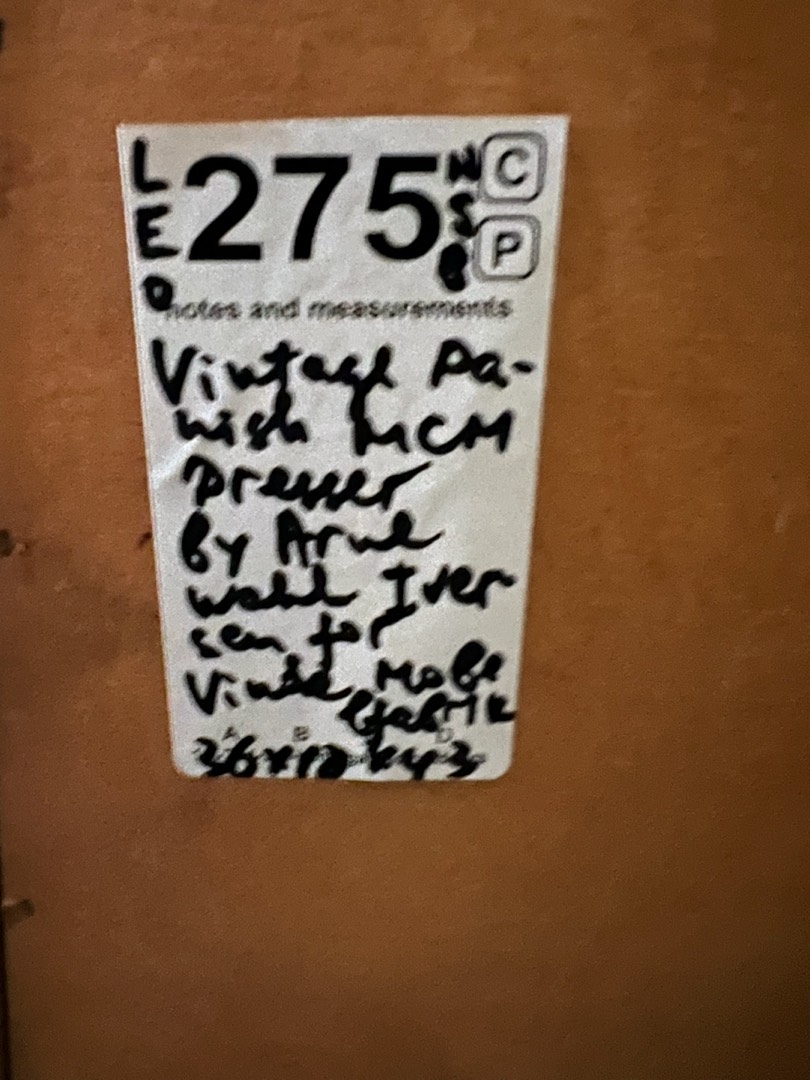 LEO 275 WSB C
P
notes and measurements
Vintage Da-
nish MCM
Dresser
By Arne
Wahl Iver
sen for
Vinde Møbe
lfabrik
A B D
36x18x43